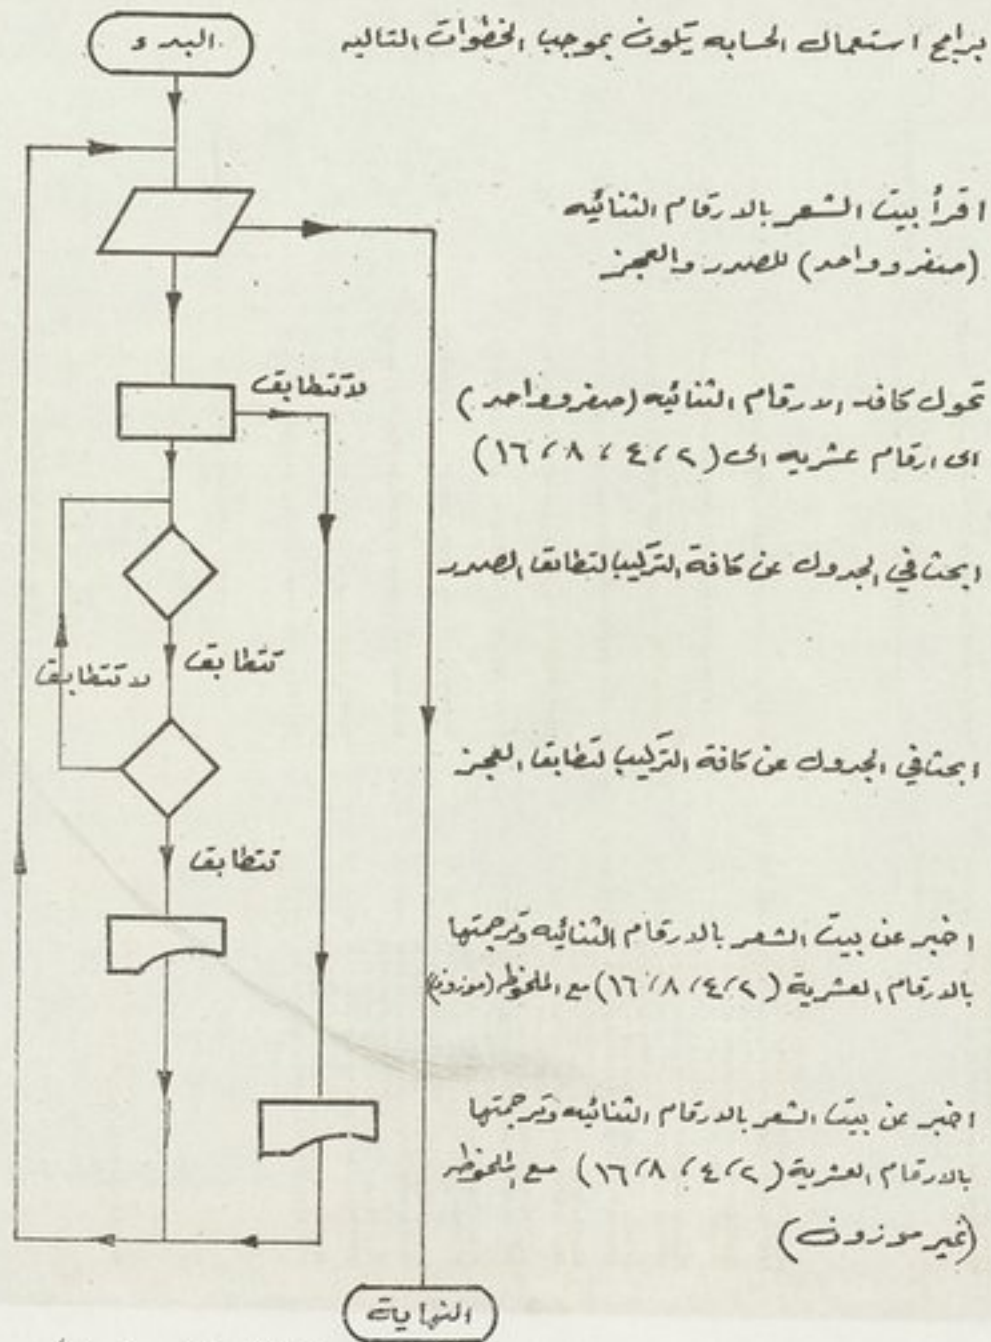 برامج استعمال الحسابه يكون بموجب الخطوات التاليه
البدء
اقرأ بيت الشعر بالارقام الثنائيه
(صفر وواحد) للصدر والعجز
تحول كافه الارقام الثنائيه (صفر وواحد)
الى ارقام عشريه الى (٢، ٤، ٨، ١٦)
لا تتطابق
ابحث في الجدول عن كافة التركيب لتطابق الصدر
تتطابق
لا تتطابق
ابحث في الجدول عن كافة التركيب لتطابق العجز
تتطابق
اخبر عن بيت الشعر بالارقام الثنائيه وترجمتها
بالارقام العشرية (٢، ٤، ٨، ١٦) مع الملحوظه (موزون)
اخبر عن بيت الشعر بالارقام الثنائيه وترجمتها
بالارقام العشرية (٢، ٤، ٨، ١٦) مع الملحوظه
(غير موزون)
النهاية